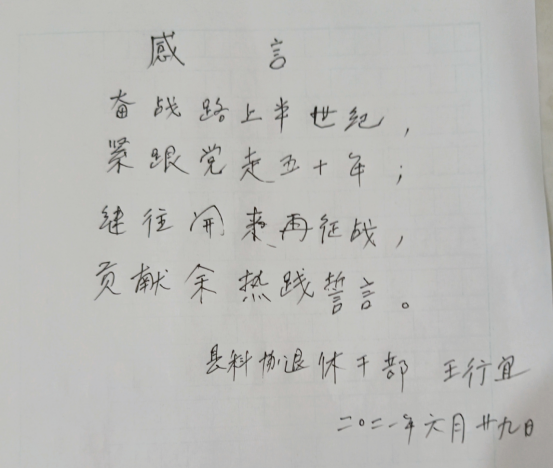 感 言
奋战路上半世纪，
紧跟党走五十年；
继往开来再征战，
贡献余热践誓言。
县科协退休干部 王行宜
二〇二一年六月廿九日